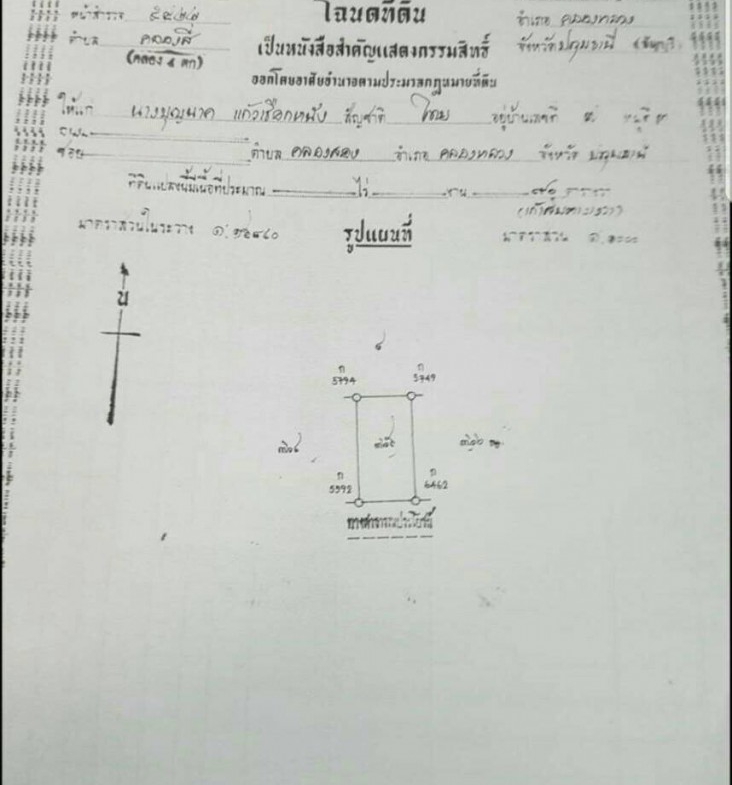 โฉนดที่ดิน
หน้าสำรวจ อำเภอ คลองหลวง
ตำบล คลองสี่ เป็นหนังสือสำคัญแสดงกรรมสิทธิ์ จังหวัดปทุมธานี (ธัญบุรี)
(คลอง 4 ตก)
ออกโดยอาศัยอำนาจตามประมวลกฎหมายที่ดิน
ให้แก่ นางบุญนาค แก้วเชือกหนัง สัญชาติ ไทย อยู่บ้านเลขที่ หมู่ที่
ถนน
ซอย ตำบล คลองสอง อำเภอ คลองหลวง จังหวัด ปทุมธานี
ที่ดินแปลงนี้มีเนื้อที่ประมาณ ไร่ งาน
มาตราส่วนในระวาง รูปแผนที่ มาตราส่วน ๑:
น
ก ก
5794 5749
ก ก
5592 6462
ทางสาธารณประโยชน์